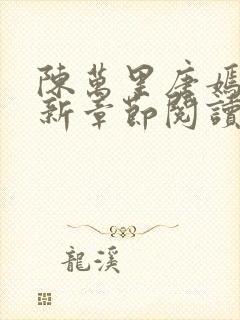 陳萬里唐嫣
新章節閱讀
龍溪